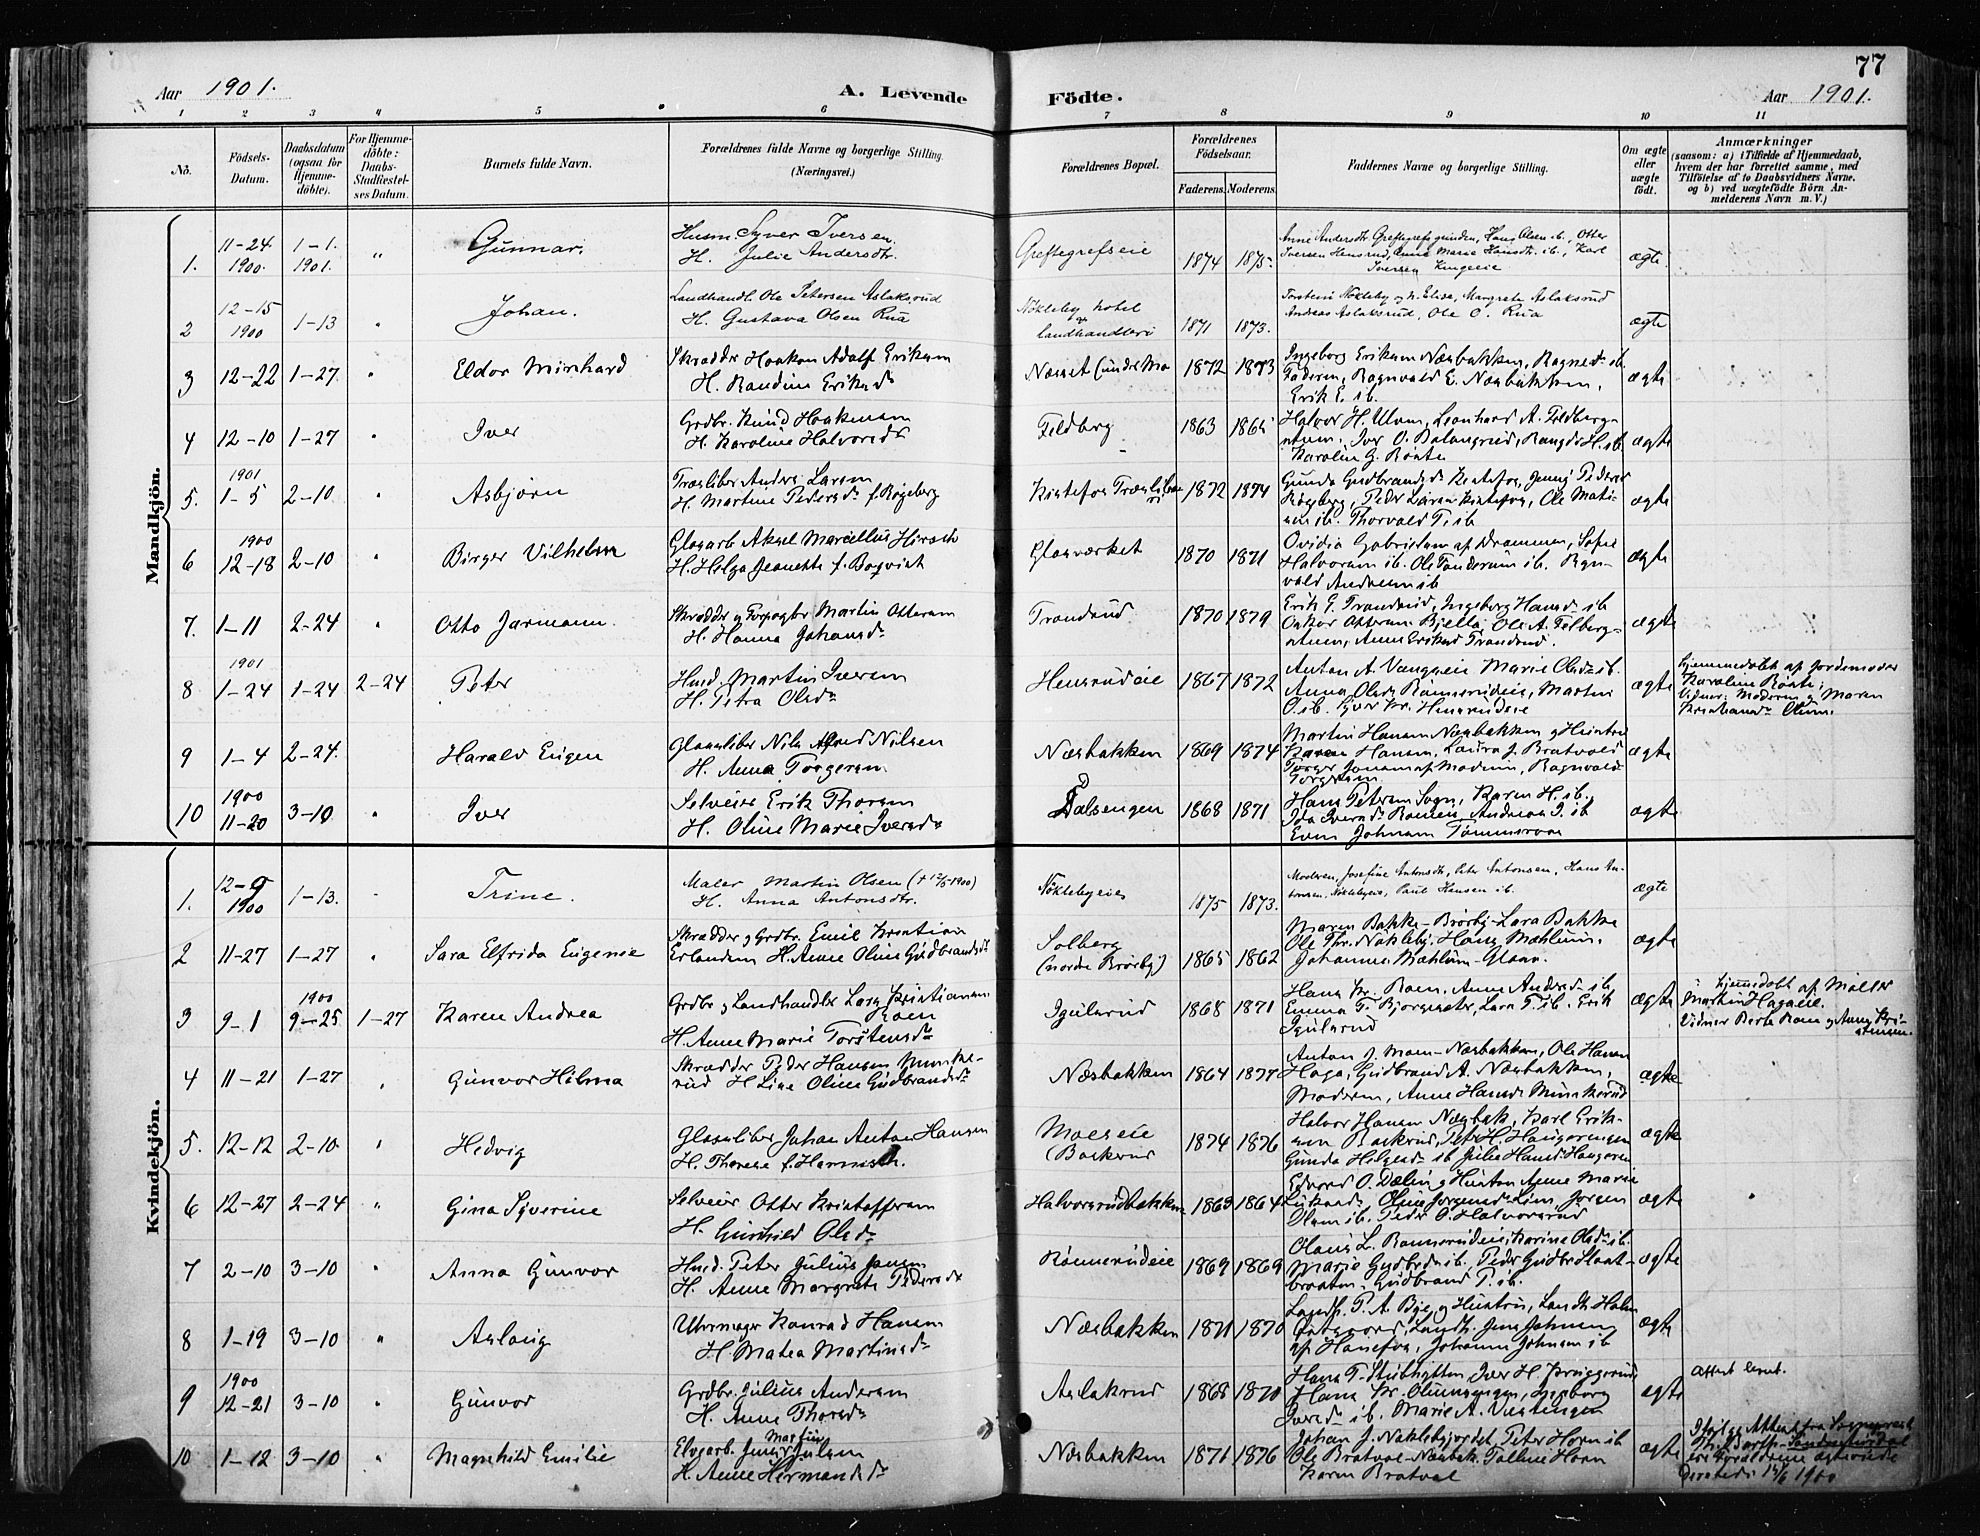 77
Aar 1901.
A. Levende Födte.
Aar 1901.
1 2 3 4 5 6 7 8 9 10 11
No.
Födsels-Datum.
Daabsdatum (ogsaa for Hjemme-döbte).
For Hjemme-döbte: Daabs-Stadfæstel-ses Datum.
Barnets fulde Navn.
Forældrenes fulde Navne og borgerlige Stilling. (Næringsvei.)
Forældrenes Bopæl.
Forældrenes Födselsaar.
Faderens. Moderens.
Faddernes Navne og borgerlige Stilling.
Om ægte eller uægte födt.
Anmærkninger
(saasom: a) i Tilfælde af Hjemmedaab, hvem der har forrettet samme, med Tilföielse af to Daabsvidners Navne, og b) ved uægtefödte Börn An-melderens Navn m. V.)
Mandkjön.
1. 11-24 1900. 1-1. 1901. " Gunnar. Husm. Syver Iversen. H. Julie Andersdtr. Greftegrefseie 1874 1875 Anne Andersdtr. Greftegrefsgrinden, Hans Olsen ib., Otter Iversen Hensrud, Anna Marie Hansdtr. ib., Karl Iversen ægte.
2 12-15 1900 1-13 " Johan. Landhandl. Ole Petersen Aslaksrud H. Gustava Olsen Rua Nökleby hotel og landhandleri 1871 1873. Torstein Nökleby og h. Elise, Margrete Aslaksrud Andreas Aslaksrud, Ole O. Rua ægte
3 12-22 1-27. " Eldor Minhard Skrædder Haakon Adolf Eriksen H. Randine Eriksdr Næsset 1872 1873 Ingeborg Eriksen Næsbakken, Ragne ib. Faderen, Ragnvald E. Næsbakken, Erik E. ib. ægte
4 12-10 1-27 " Iver Grdbr. Knud Haakensen H. Karoline Halvorsdr Feldberg 1863 1865 Halvor H. Ulven, Leonhard A. Feldberg- Iver O. H. ib. Karoline G. Rønte ægte
5. 1901 1-5 2-10 " Asbjørn Træsliber Anders Larsen H. Martine Pedersdr f. Røgeberg Kistefos Træsliberi 1872 1874 Gunda Gudbrandsdr Kistefos, Jenny Pedersdr Røgeberg, Peder Larsen Kistefos, Ole ib. Thorvald P. ib ægte
6 1900 12-18 2-10 " Birger Vilhelm Glasarb. Aksel Marcellius Hirsch H. Helga Jeanette f. Bogvist Glasværket 1870 1871 Ovidia Gabrielsen af Drammen, Sofie Halvorsen ib. Ole ib. Ragnvald Andersen ib ægte
7. 1-11 2-24 " Otto Jarmann. Skrædder og Forpagter Martin Ottersen H. Hanna Johansdr Trandrud 1870 1879 Erik G. Trandrud, Ingeborg Hansdr ib Oskar Ottersen Bjella, Ole A. Felberg- Anne Eriksd Trandrud. ægte
8 1901 1-24 1-24 2-24 Peter Husd. Martin Iversen H. Petra Olsdr Hensrudeie 1867 1872 Anton A. Marie Olsdr ib. Anna Olsdr Rønnerudeie, Martin O. ib. Iver Kr. Hensrudeie ægte Hjemmedøbt af Jordemoder Karoline Rønte; Vidner: Moderen og Maren
9 1-4 2-24. Harald Eugen Glassliber Nils Alfred Nilsen H. Anna Torgersen Næsbakken 1869 1874 Martin Hansen Næsbakken og Hustru Karen Hansen, Laura J. Bratvold Torger Johansen af Modum, Ragnvald Torgersen ægte
10 1900 11-20 3-10 " Iver Selveier Erik Thorsen H. Oline Marie Iversdr Dalsengen 1868 1871 Hans Petersen Sogn, Karen H. ib. Ida Iversdr Romeie, Andreas I. ib Even Johnsen ægte
Kvindekjön.
1. 12-9 1900 1-13. " Trine. Maler Martin Olsen H. Anna Antonsdtr. Nöklebyeie 1875 1873. Moderen, Josefine Antonsdtr., Peter Antonsen, Hans Antonsen, Nöklebyeie, Paul Hansen ib. ægte
2 11-27 1-27 " Sara Elfrida Eugenie Skrædder og Grdbr. Emil Kristian Erlandsen H. Anne Oline Gudbrandsdr Solberg (nordre Brørby) 1865 1862 Maren Bakke-Brørby-Lara Bakke Ole Thr. Nøkleby, Hans Mæhlum, Johannes Mæhlum-Gloør. ægte
3 9-1 1900 9-25 1-27 Karen Andrea Grdbr og Landhandler Lars Kristiansen Roen H. Anne Marie Torstensdr Igulsrud 1868 1871 Hans Kr. Roen, Anne Andersdr ib, Emma T. Bjorgeseter, Lars T. ib. Erik Igulsrud ægte Hjemmedøbt af Møller Martin Hagaeie. Vidner Berte Roen og Anne Kristensen.
4 11-21 1-27 " Gunvor Hilma Skrædder Peder Hansen Munkerud H. Lise Oline Gudbrandsdr Næsbakken 1864 1877 Anton J. Moen-Næsbakken, Ole Hansen Haga, Gudbrand A. Næsbakken, Moderen, Anne Hansdr Munkerud ægte
5. 12-12 2-10 " Hedvig Glassliber Johan Anton Hansen H. Therese f. Harmsch. Moeseie (Bakerud 1874 1876 Halvor Hansen Næsbak, Karl Eriksen Baskrud, Peter H. Haugerengen Gunda Helgesdr ib Julie Hansd Haugeren ægte
6 12-27 2-24 " Gina Syverine Selveier Otter Kristoffersen H. Gunhild Olsdr Halvorsrudbakken 1863 1864 Edvard O. Dælin og Hustru Anne Marie Oline Jørgensdr Lien, Jørgen Olsen ib. Peder O. Halvorsrud ægte
7 2-10 3-10 " Anna Gunvor Husd. Peter Julius Jansen H. Anne Margrete Pedersdr Rønnerudeie 1869 1869 Olaus L. Rønnerudeie, Karine Olsdr ib. Marie Gudbrdr ib., Peder Gudbr Slaatbraaten, Gudbrand P. ib. ægte
8 1-19 3-10 " Aslaug Uhrmager Konrad Hansen H. Matea Martinsdr Næsbakken 1871 1870 Landh. P. A. Bye og Hustru, Landh. Holm Landh. Jens Johnsen af Hønefos, Johanne Johnsen ib ægte
9 1900 12-21 3-10 " Gunvor Grdbr. Julius Andersen H. Anne Thorsdr Aslakrud 1868 1870 Hans T. Stubhytten, Iver H. Hans Kr. Olimsengen, Ingeborg Iversdr ib. Marie A. ægte Attest levert.
10 1-12 3-10 " Magnhild Emilie Elvearb. Jens Martin Julsen H. Anne Hermansdr Næsbakken 1871 1876 Johan J. Nøklebyjordet, Peter Horn ib Ole Bratval-Næsbak. Palline Horn Karen Bratval ægte Ifølge Attest fra Sognepræst ere Forældrene ægteviede 1900